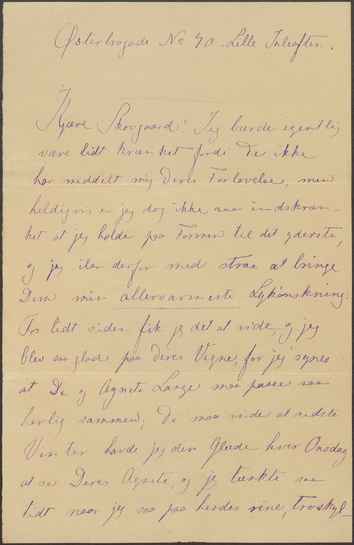 Østerbrogade No 70. Lille Juleaften.
Kjære Skovgaard! Jeg burde egentlig
være lidt krænket fordi De ikke
har meddelt mig Deres Forlovelse, men
heldigvis er jeg dog ikke saa indskræn-
ket at jeg holder paa Formen til det yderste,
og jeg iler derfor med straa at bringe
Dem min allervarmeste Lykønskning.
For lidt siden fik jeg det at vide, og jeg
blev saa glad paa Deres Vegne, for jeg synes
at De og Agnete Lange maa passe saa
herlig sammen; De maa vide at sidste
Vinter havde jeg den Glæde hver Onsdag
at se Deres Agnete, og jeg tænkte saa
tidt naar jeg saa paa hendes rene, troskyl-